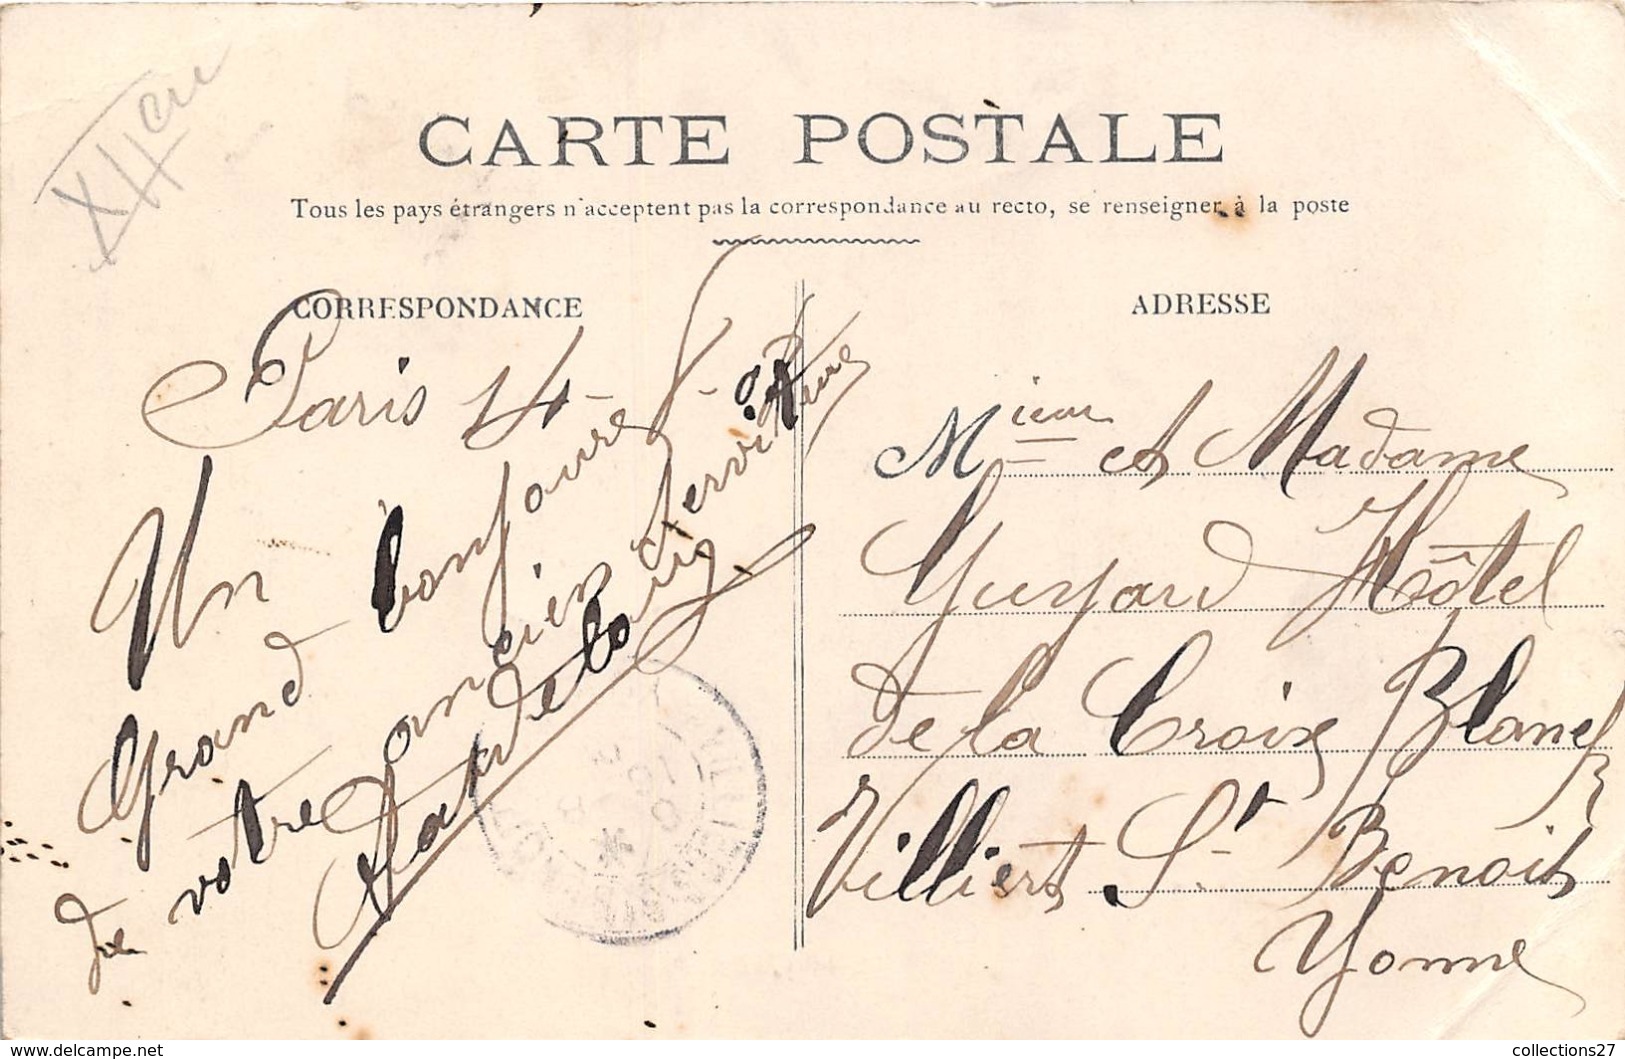 XIIeme
CARTE POSTALE
Tous les pays étrangers n'acceptent pas la correspondance au recto, se renseigner à la poste
CORRESPONDANCE
Paris 14 - 8 - 07
Un
Grand bonjoure
de votre ancien Serviteure
ADRESSE
Mieur et Madame
Guyard Hôtel
de la Croix Blanche
Villiers St Benoit
Yonne
www.delcampe.net
collections27